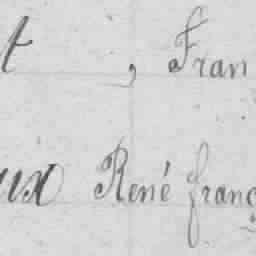 t , Fran
ux René franç